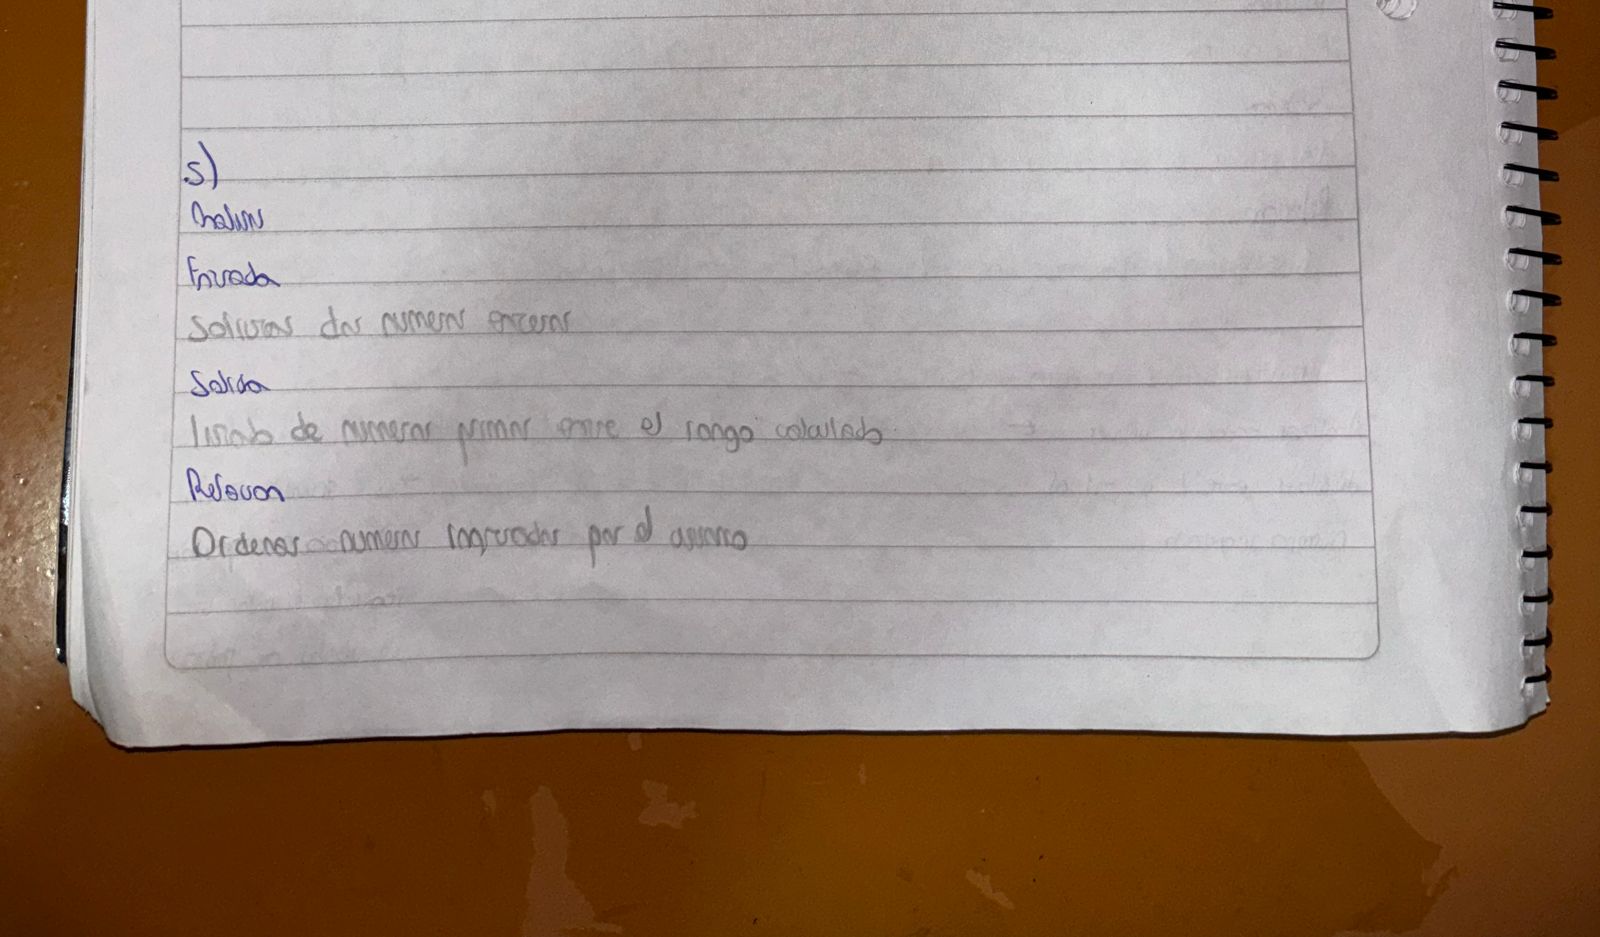 5)
Analisis
Entrada
Solicitar dos numeros enteros
Salida
listado de numeros primos entre el rango calculado
Relacion
Ordenar numeros ingresados por el usuario